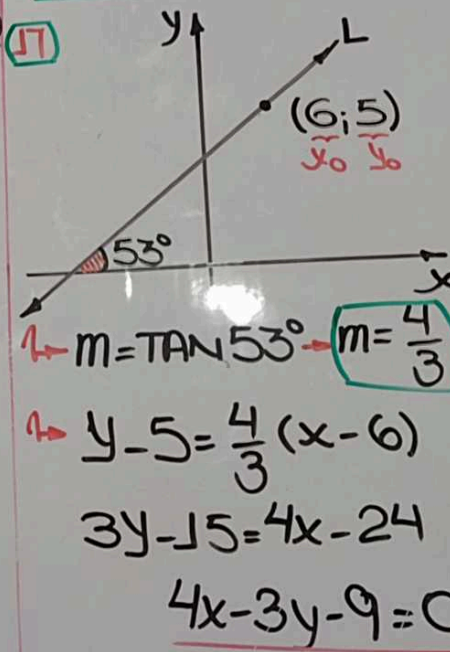 17
y
L
(6;5)
x₀ y₀
53°
x
m=TAN53° → m=4/3
y-5=4/3(x-6)
3y-15=4x-24
4x-3y-9=0